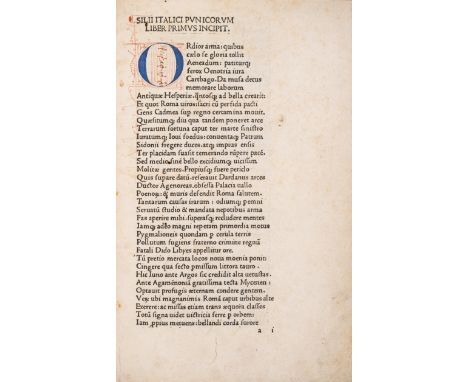 SILII ITALICI PVNICORVM
LIBER PRIMVS INCIPIT.
ORdior arma: quibus
cælo se gloria tollit
Aeneadum: patiturq;
ferox Oenotria iura
Carthago. Da musa decus
memorare laborum
Antiquæ Hesperiæ. q̃ntosq; ad bella crearit:
Et quot Roma uiros: sacri cũ perfida pacti
Gens Cadmea sup regno certamina mouit.
Quæsitumq; diu qua tandem poneret arce
Terrarum fortuna caput ter marte sinistro
Iuratumq; Ioui foedus: conuentaq; Patrum
Sidonii fregere duces. atq; impius ensis
Ter placidam suasit temerando rũpere pacẽ.
Sed medio finẽ bello excidiumq; uicissim
Molitæ gentes. Propiusq; fuere periclo
Quis superare datũ. reserauit Dardanus arces
Ductor Agenoreas. obsessa Palatia uallo
Poenoꝝ: ac muris defendit Roma salutem.
Tantarum causas irarum: odiumq; perenni
Seruatũ studio & mandata nepotibus arma
Fas aperire mihi. superasq; recludere mentes
Iamq; adeo magni repetam primordia motus
Pygmalioneis quondam p cerula terris
Pollutum fugiens fraterno crimine regnũ
Fatali Dido Libyes appellitur oræ.
Tũ pretio mercata locos noua moenia ponit:
Cingere qua secto pmissum littora tauro.
Hic Iuno ante Argos sic credidit alta uetustas.
Ante Agamẽnoniã gratissima tecta Mycenen:
Optauit profugis æternam condere gentem.
Veꝝ ubi magnanimis Romã caput urbibus alte
Exerere: ac missas etiam trans æquora classes
Totũ signa uidet uictricia ferre p orbem:
Iam ,ppius metuens: bellandi corda furore
a i